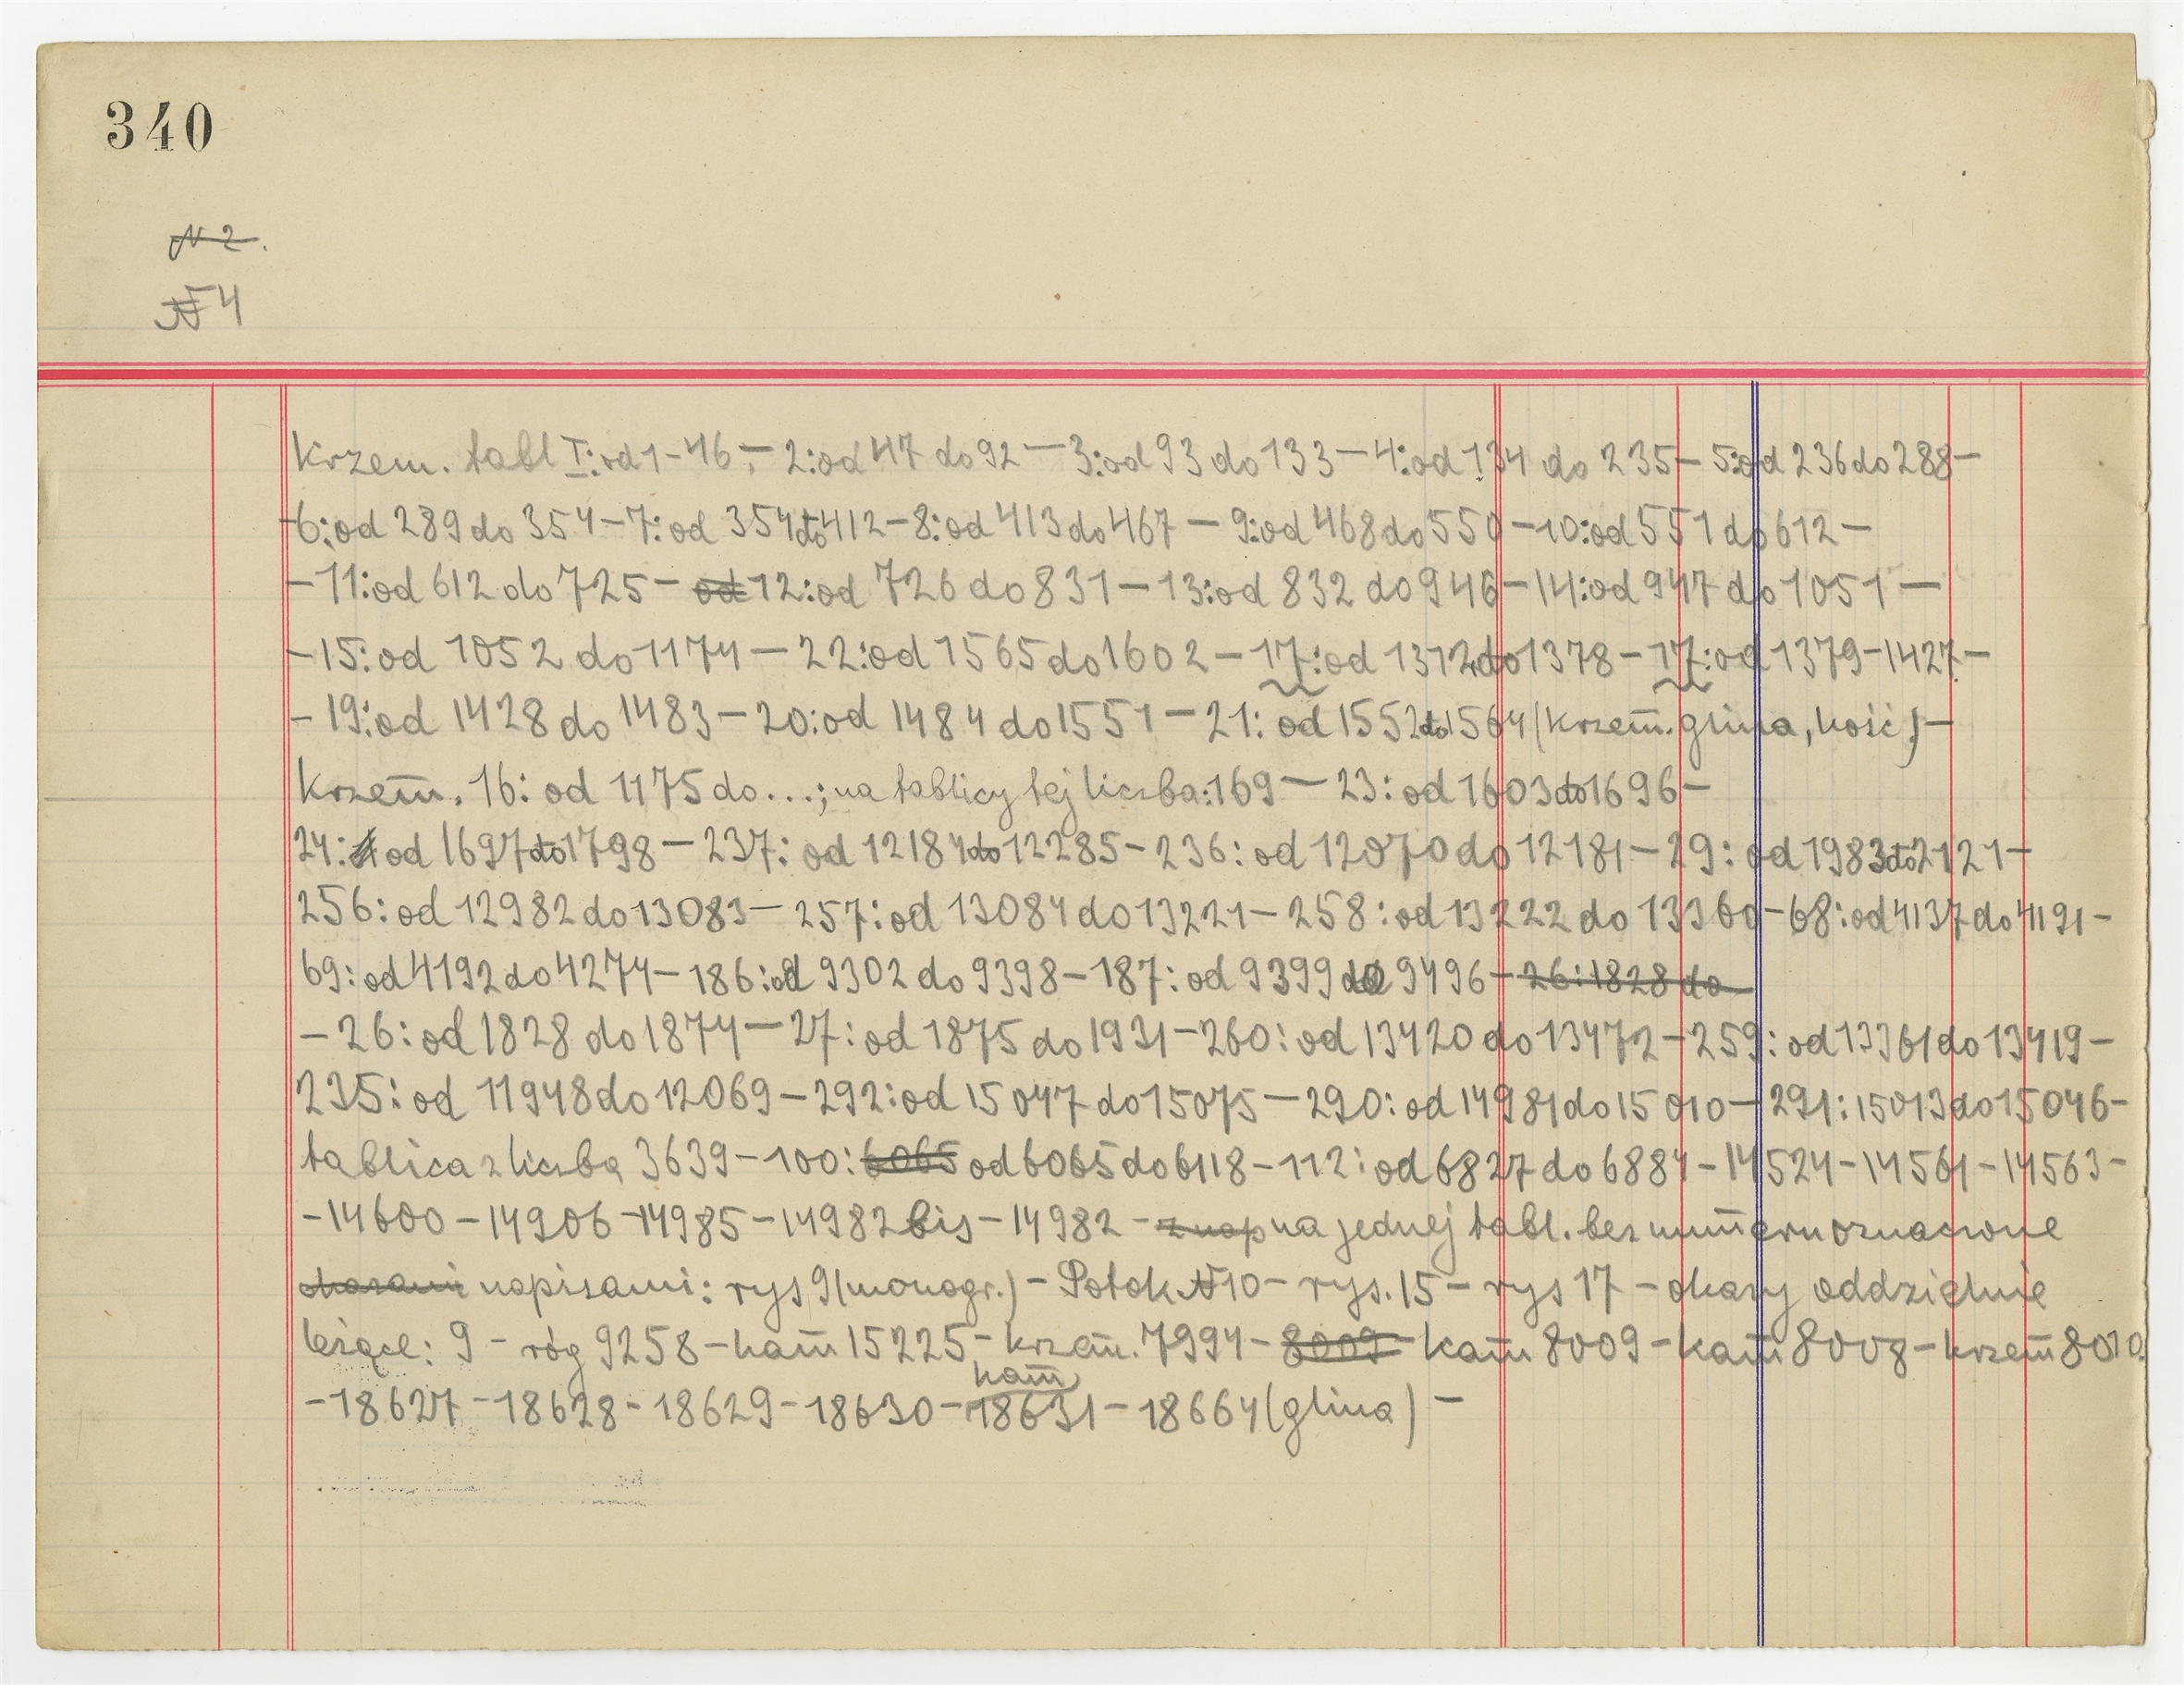 340
N 2.
№ 4
Krzem. tabl I: od 1-46; - 2: od 47 do 92 - 3: od 93 do 133 - 4: od 134 do 235 - 5: od 236 do 288 -
-6: od 289 do 354 - 7: od 354 do 412 - 8: od 413 do 467 - 9: od 468 do 550 - 10: od 551 do 612 -
- 11: od 612 do 725 - od 12: od 726 do 831 - 13: od 832 do 946 - 14: od 947 do 1051 -
- 15: od 1052 do 1174 - 22: od 1565 do 1602 - 17: od 1312 do 1378 - 17: od 1379-1427 -
- 19: od 1428 do 1483 - 20: od 1484 do 1551 - 21: od 1552 do 1564 (krzem̅. glina, kość) -
Krzem̅. 16: od 1175 do ...; na tablicy tej liczba: 169 - 23: od 1603 do 1696 -
24: od 1697 do 1798 - 237: od 12184 do 12285 - 236: od 12070 do 12181 - 29: od 1983 do 2121 -
256: od 12982 do 13083 - 257: od 13084 do 13221 - 258: od 13222 do 13360 - 68: od 4137 do 4191 -
69: od 4192 do 4274 - 186: od 9302 do 9398 - 187: od 9399 do 9496 - 26: 1828 do
- 26: od 1828 do 1874 - 27: od 1875 do 1931 - 260: od 13420 do 13472 - 259: od 13361 do 13419 -
235: od 11948 do 12069 - 292: od 15047 do 15075 - 290: od 14981 do 15010 - 291: 15013 do 15046 -
tablica z liczbą 3639 - 100: 6065 od 6065 do 6118 - 112: od 6827 do 6884 - 14524 - 14561 - 14563 -
- 14600 - 14906 - 14985 - 14982 bis - 14982 - z nap na jednej tabl. bez num̅eru oznaczone
okazami napisami: rys 9 (monogr.) - Potok № 10 - rys. 15 - rys 17 - okazy oddzielnie
leżące: 9 - róg 9258 - kam̅ 15225 - krzem̅. 7994 - 8009 - kam̅ 8009 - kam̅ 8008 - krzem̅ 8010
- 18627 - 18628 - 18629 - 18630 - kam̅ 18631 - 18664 (glina) -